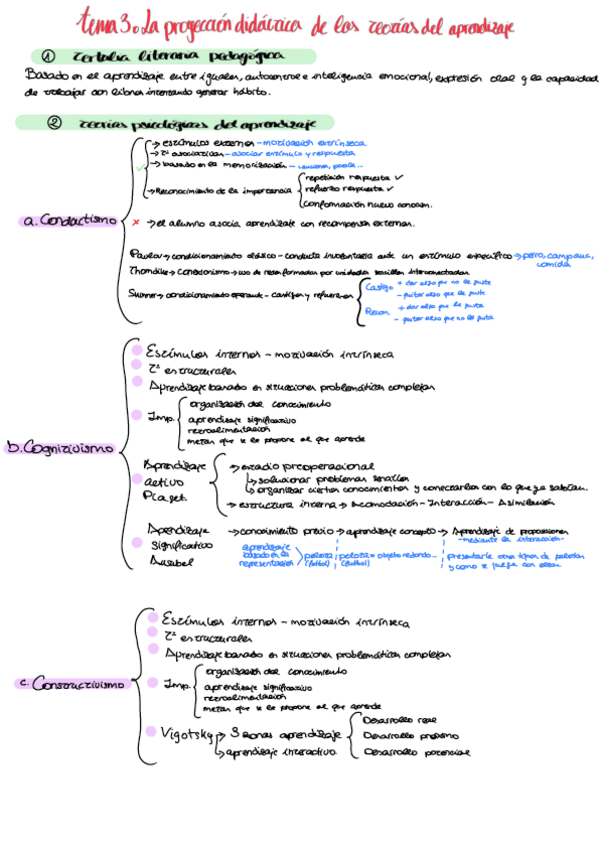 tema 3. La proyección didáctica de las teorías del aprendizaje
① Tertulia literaria pedagógica
Basado en el aprendizaje entre iguales, autocontrol e inteligencia emocional, expresión oral y la capacidad
de trabajar con libros intentando generar hábito.
② teorías psicológicas del aprendizaje
a. Conductismo
→ estímulos externos - motivación extrínseca
→ Tª asociativas - asociar estímulo y respuesta
→ basado en la memorización - canciones, poesía...
→ Reconocimiento de la importancia
repetición respuesta ✓
refuerzo respuesta ✓
conformación nuevo conocim.
✗ → el alumno asocia aprendizaje con recompensa externa.
Pavlov → condicionamiento clásico - conducta involuntaria ante un estímulo específico → perro, campana,
comida
Thorndike → Conexionismo → uso de redes formadas por unidades sencillas interconectadas
Skinner → condicionamiento operante - castigos y refuerzos
Castigo + dar algo que no le guste
- quitar algo que le guste
Recom. + dar algo que le gusta
- quitar algo que no le gusta
b. Cognitivismo
Estímulos internos - motivación intrínseca
Tª estructurales
Aprendizaje basado en situaciones problemáticas complejas
Imp.
organización del conocimiento
aprendizaje significativo
retroalimentación
metas que se le propone al que aprende
Aprendizaje
activo
Piaget.
→ estadio preoperacional
↳ solucionar problemas sencillos
↳ organizar ciertos conocimientos y conectarlos con lo que ya sabían.
→ estructura interna → Acomodación - Interacción - Asimilación
Aprendizaje
significativo
Ausubel
→ conocimiento previo → aprendizaje concepto → Aprendizaje de proposiciones
- mediante la interacción -
aprendizaje
basado en la
representación
pelota
(fútbol)
pelota = objeto redondo...
(fútbol)
presentarle otros tipos de pelotas
y como se juega con ellas
c. Constructivismo
Estímulos internos - motivación intrínseca
Tª estructurales
Aprendizaje basado en situaciones problemáticas complejas
Imp.
organización del conocimiento
aprendizaje significativo
retroalimentación
metas que se le propone al que aprende
Vigotsky → 3 zonas aprendizaje
Desarrollo real
Desarrollo próximo
Desarrollo potencial
↳ aprendizaje interactivo